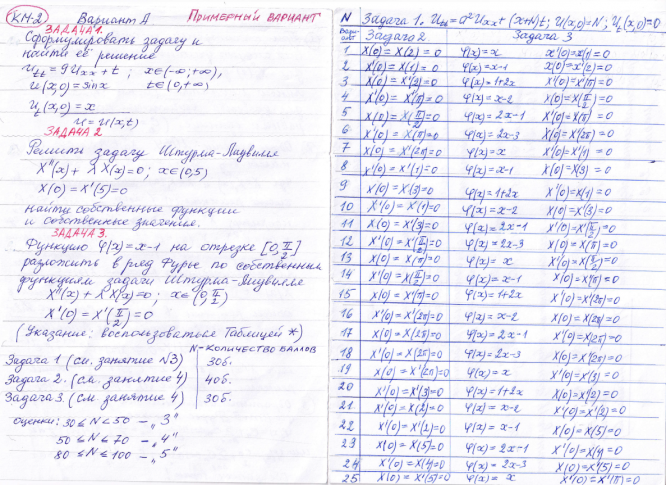 КМ-2 Вариант А ПРИМЕРНЫЙ ВАРИАНТ
ЗАДАЧА 1.
Сформулировать задачу и
найти её решение
u_tt = 9 u_xx + t ; x∈(-∞;+∞),
u(x,0) = sin x t∈(0,+∞)
u_t(x,0) = x
u = u(x,t)
ЗАДАЧА 2
Решить задачу Штурма-Лиувилля
X''(x) + λ X(x) = 0; x∈(0,5)
X(0) = X'(5) = 0
найти собственные функции
и собственные значения.
ЗАДАЧА 3.
Функцию φ(x) = x-1 на отрезке [0, π/2]
разложить в ряд Фурье по собственным
функциям задачи Штурма-Лиувилля
X''(x) + λ X(x) = 0; x∈(0, π/2)
X'(0) = X'(π/2) = 0
(Указание: воспользоваться Таблицей *)
N - КОЛИЧЕСТВО БАЛЛОВ
Задача 1 (см. занятие №3) 30б.
Задача 2. (см. занятие 4) 40б.
Задача 3. (см. занятие 4) 30б.
оценки: 30 ≤ N < 50 – „3"
50 ≤ N ≤ 70 – „4"
80 ≤ N ≤ 100 – „5"
N Задача 1. u_tt = a² u_xx + (x+N)t ; u(x,0) = N ; u_t(x,0) = 0.
Вари-
ант Задача 2 Задача 3
1 X(0) = X(2) = 0 φ(x) = x X'(0) = X(1) = 0
2 X'(0) = X(1) = 0 φ(x) = x-1 X(0) = X'(2) = 0
3 X(0) = X'(2) = 0 φ(x) = 1+2x X'(0) = X'(π) = 0
4 X'(0) = X'(π) = 0 φ(x) = x-2 X(0) = X(π/2) = 0
5 X(0) = X(π/2) = 0 φ(x) = 2x-1 X'(0) = X(π) = 0
6 X'(0) = X(π) = 0 φ(x) = 2x-3 X(0) = X(2π) = 0
7 X(0) = X'(2π) = 0 φ(x) = x X'(0) = X'(1) = 0
8 X'(0) = X'(1) = 0 φ(x) = x-1 X(0) = X(3) = 0
9 X(0) = X(3) = 0 φ(x) = 1+2x X'(0) = X(1) = 0
10 X'(0) = X(1) = 0 φ(x) = x-2 X(0) = X'(3) = 0
11 X(0) = X'(3) = 0 φ(x) = 2x-1 X'(0) = X'(π/2) = 0
12 X'(0) = X'(π/2) = 0 φ(x) = 2x-3 X(0) = X(π) = 0
13 X(0) = X(π) = 0 φ(x) = x X'(0) = X(π/2) = 0
14 X'(0) = X(π/2) = 0 φ(x) = x-1 X(0) = X'(π) = 0
15 X(0) = X'(π) = 0 φ(x) = 1+2x X'(0) = X'(2π) = 0
16 X'(0) = X'(2π) = 0 φ(x) = x-2 X(0) = X(2π) = 0
17 X(0) = X(2π) = 0 φ(x) = 2x-1 X'(0) = X(2π) = 0
18 X'(0) = X(2π) = 0 φ(x) = 2x-3 X(0) = X'(2π) = 0
19 X(0) = X'(2π) = 0 φ(x) = x X'(0) = X'(3) = 0
20 X'(0) = X'(3) = 0 φ(x) = 1+2x X(0) = X(2) = 0
21 X(0) = X(2) = 0 φ(x) = x-2 X'(0) = X(2) = 0
22 X'(0) = X(2) = 0 φ(x) = x-1 X(0) = X(5) = 0
23 X(0) = X(5) = 0 φ(x) = 2x-1 X'(0) = X(4) = 0
24 X'(0) = X(4) = 0 φ(x) = 2x-3 X(0) = X'(5) = 0
25 X(0) = X'(5) = 0 φ(x) = x X'(0) = X'(π) = 0